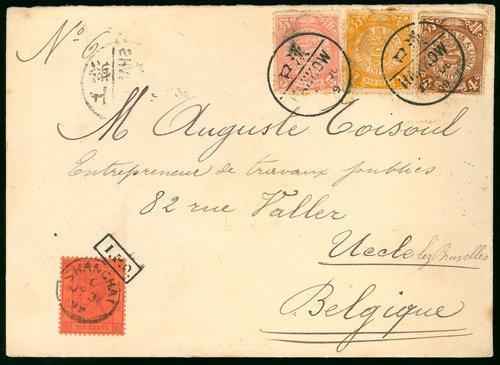 No 6
HANKOW
HANKOW
ONE CENT
M. Auguste Toisoul
Entrepreneur de travaux publics
82 rue Vallez
Uccle lez Bruxelles
Belgique
I.P.O.
SHANGHAI
TEN CENTS